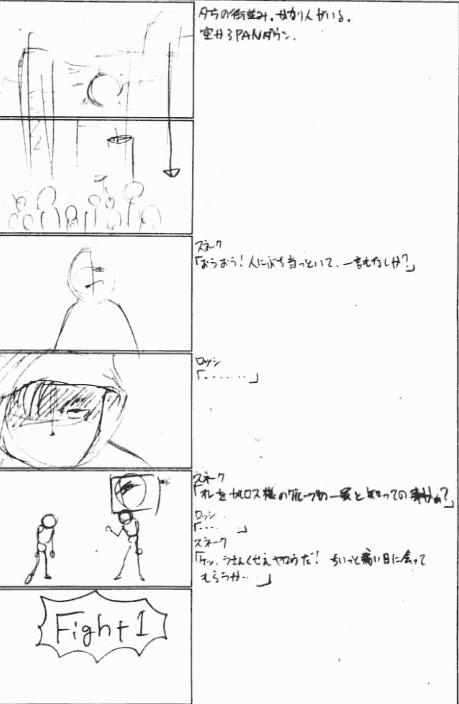 夕方の街並み。かなり人がいる。
空からPANダウン。
スネーク
「おうおう!人にぶち当っといて、一言もなしか?」
ロッシ
「‥‥‥‥」
スネーク
「オレをカルロス様のグループの一員と知っての事かぁ?」
ロッシ
「‥‥‥」
スネーク
「ケッ、うさんくせえヤロウだ! ちいっと痛い目に会って
もらうか‥‥」
Fight 1